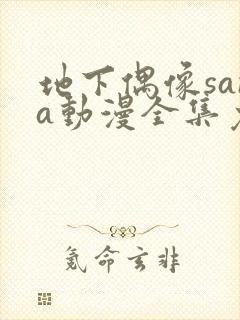 地下偶像sa
a動漫全集
氪命玄非